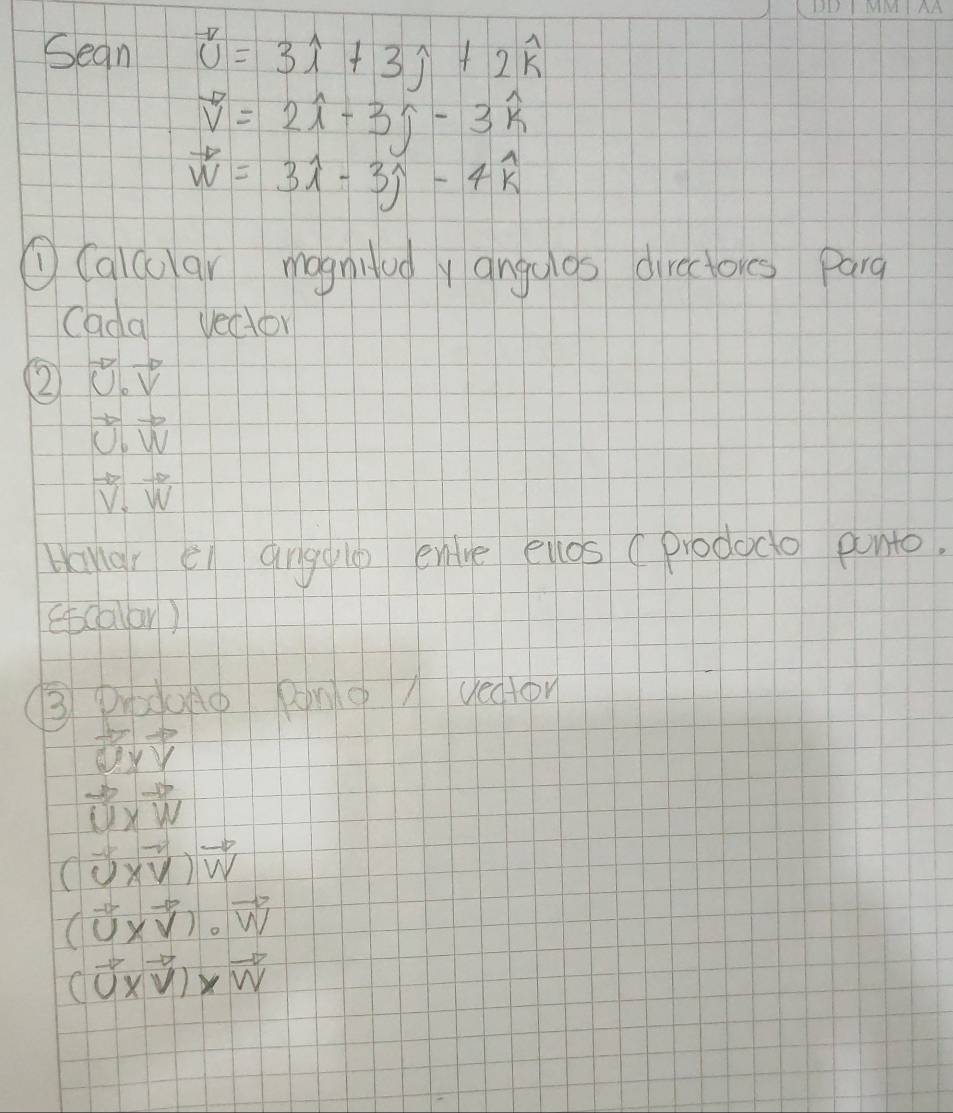 DD MM AA
Sean U⃗ = 3î + 3ĵ + 2k̂
V⃗ = 2î - 3ĵ - 3k̂
W⃗ = 3î - 3ĵ - 4k̂
① Calcular magnitud y angulos directores para
cada vector
② U⃗ . V⃗
U⃗ . W⃗
V⃗ . W⃗
Hallar el angulo entre ellos (prodocto punto.
Escalar)
③ Prodocto Ponto / vector
U⃗ x V⃗
U⃗ x W⃗
(U⃗ x V⃗) W⃗
(U⃗ x V⃗) . W⃗
(U⃗ x V⃗) x W⃗